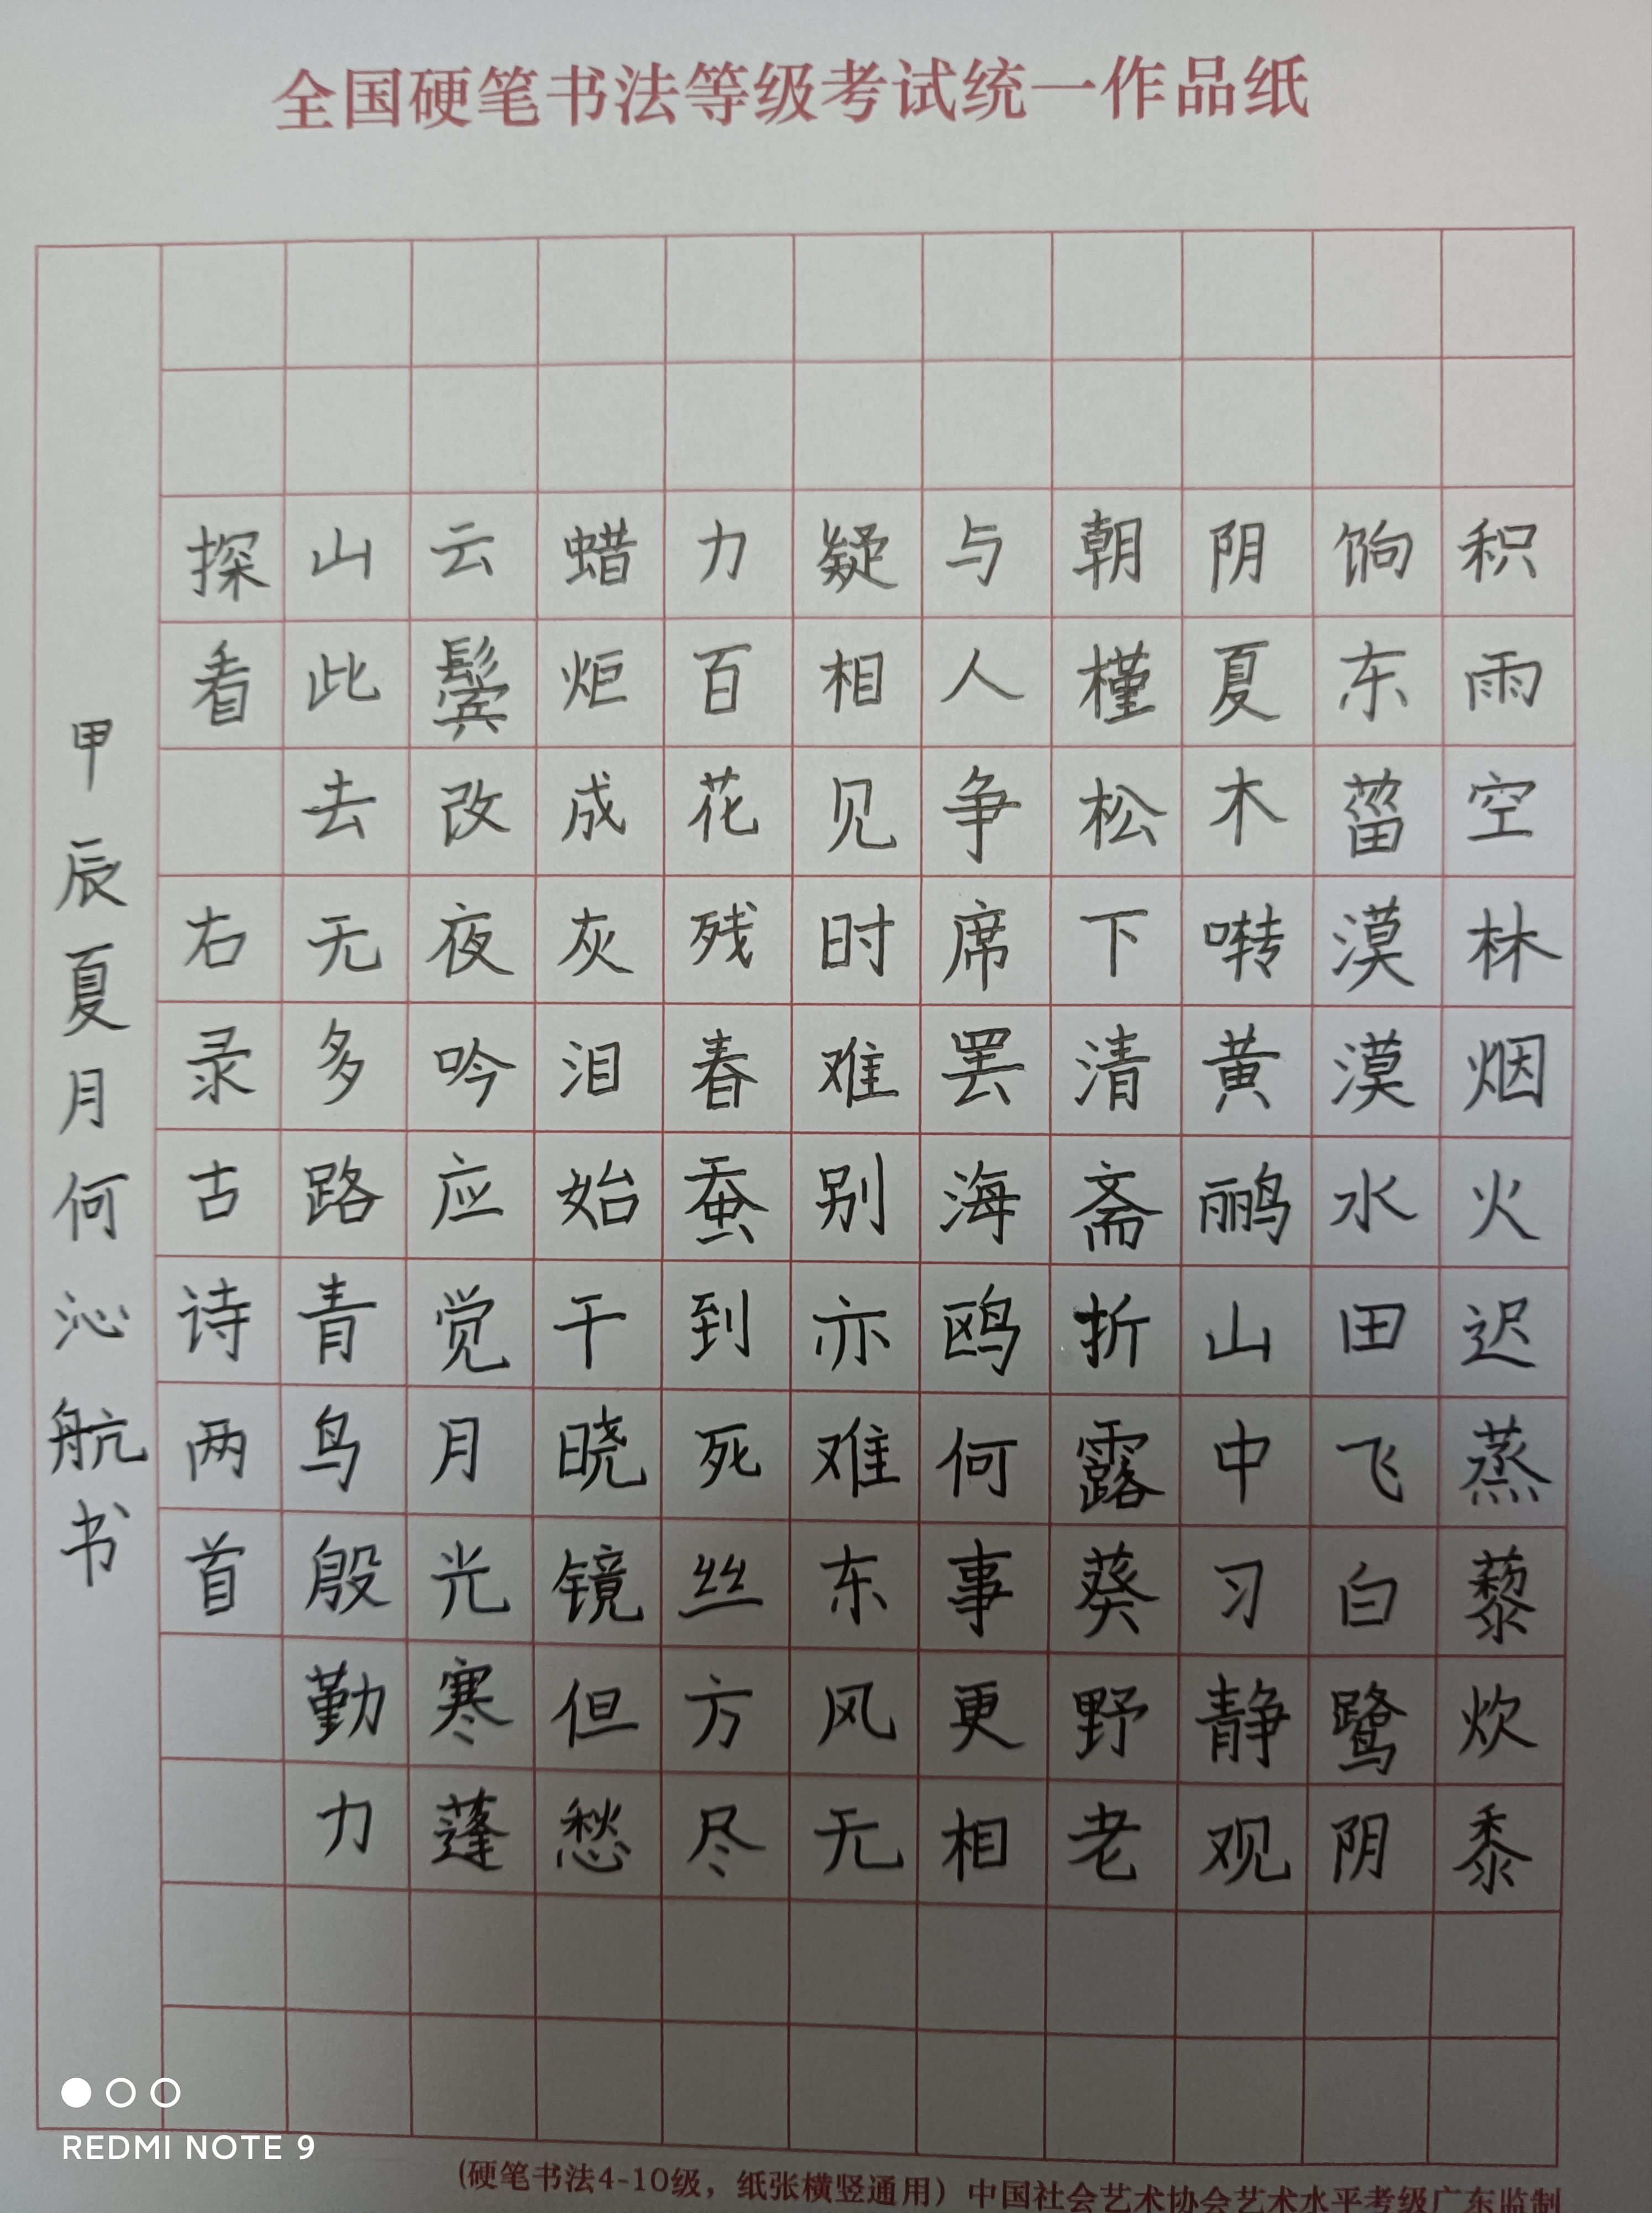 全国硬笔书法等级考试统一作品纸
积雨空林烟火迟蒸藜炊黍
饷东菑漠漠水田飞白鹭阴
阴夏木啭黄鹂山中习静观
朝槿松下清斋折露葵野老
与人争席罢海鸥何事更相
疑相见时难别亦难东风无
力百花残春蚕到死丝方尽
蜡炬成灰泪始干晓镜但愁
云鬓改夜吟应觉月光寒蓬
山此去无多路青鸟殷勤力
探看 右录古诗两首
甲辰夏月何沁航书
(硬笔书法4-10级，纸张横竖通用）中国社会艺术协会艺术水平考级广东监制
REDMI NOTE 9